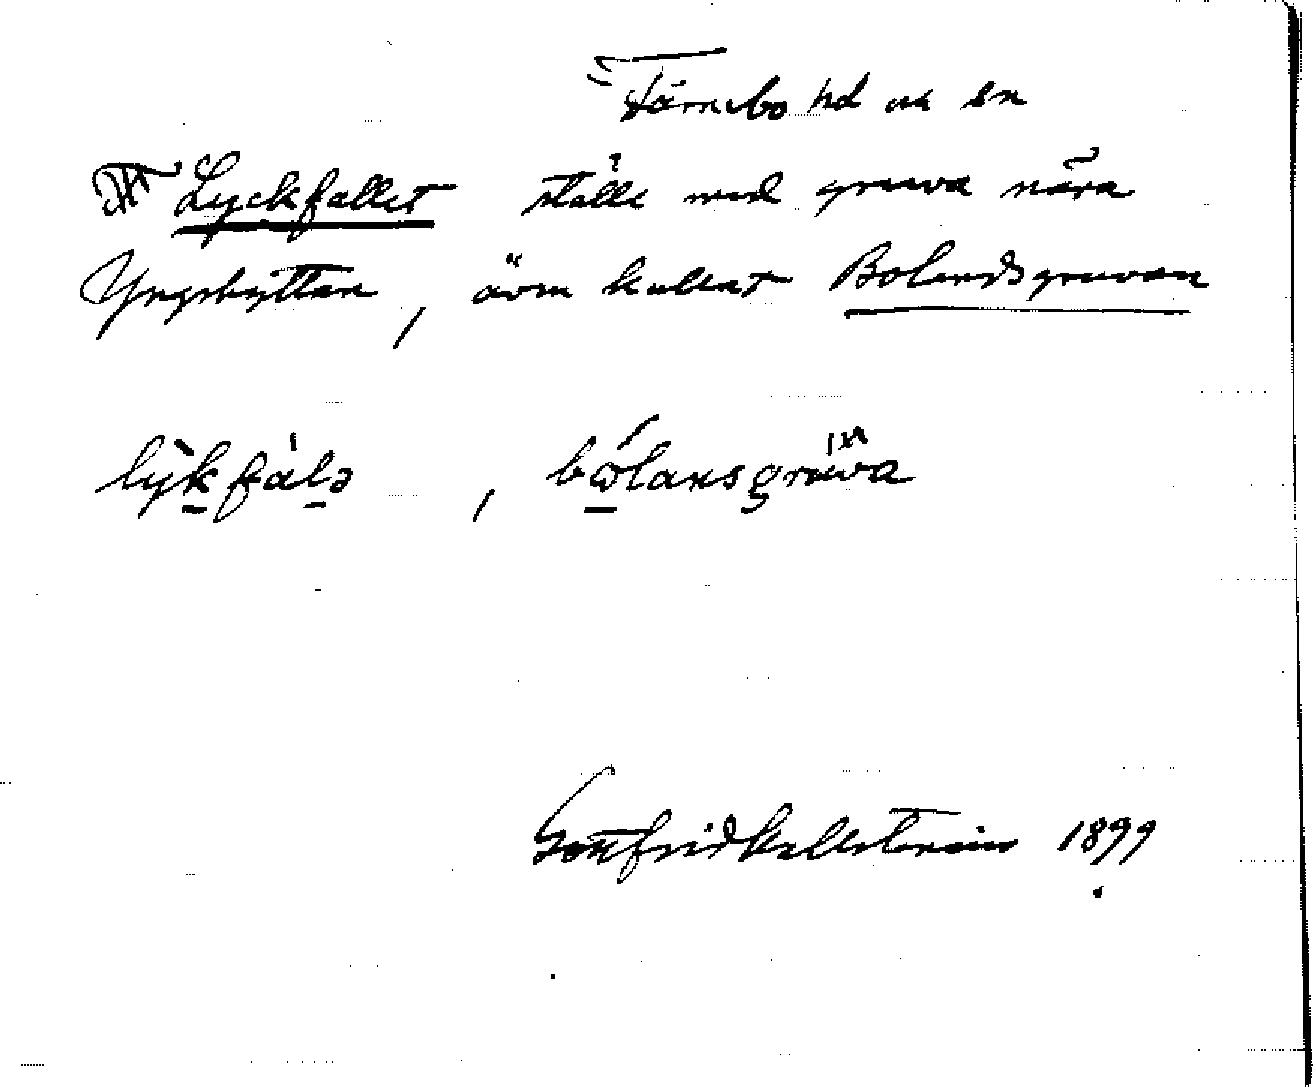 Färnebo hd och sn
Lyckfallet ställe med gruva nära
Yngshyttan, även kallat Bolandsgruvan
lykfalə, bolansgruva
Gottfrid Kallstenius 1899